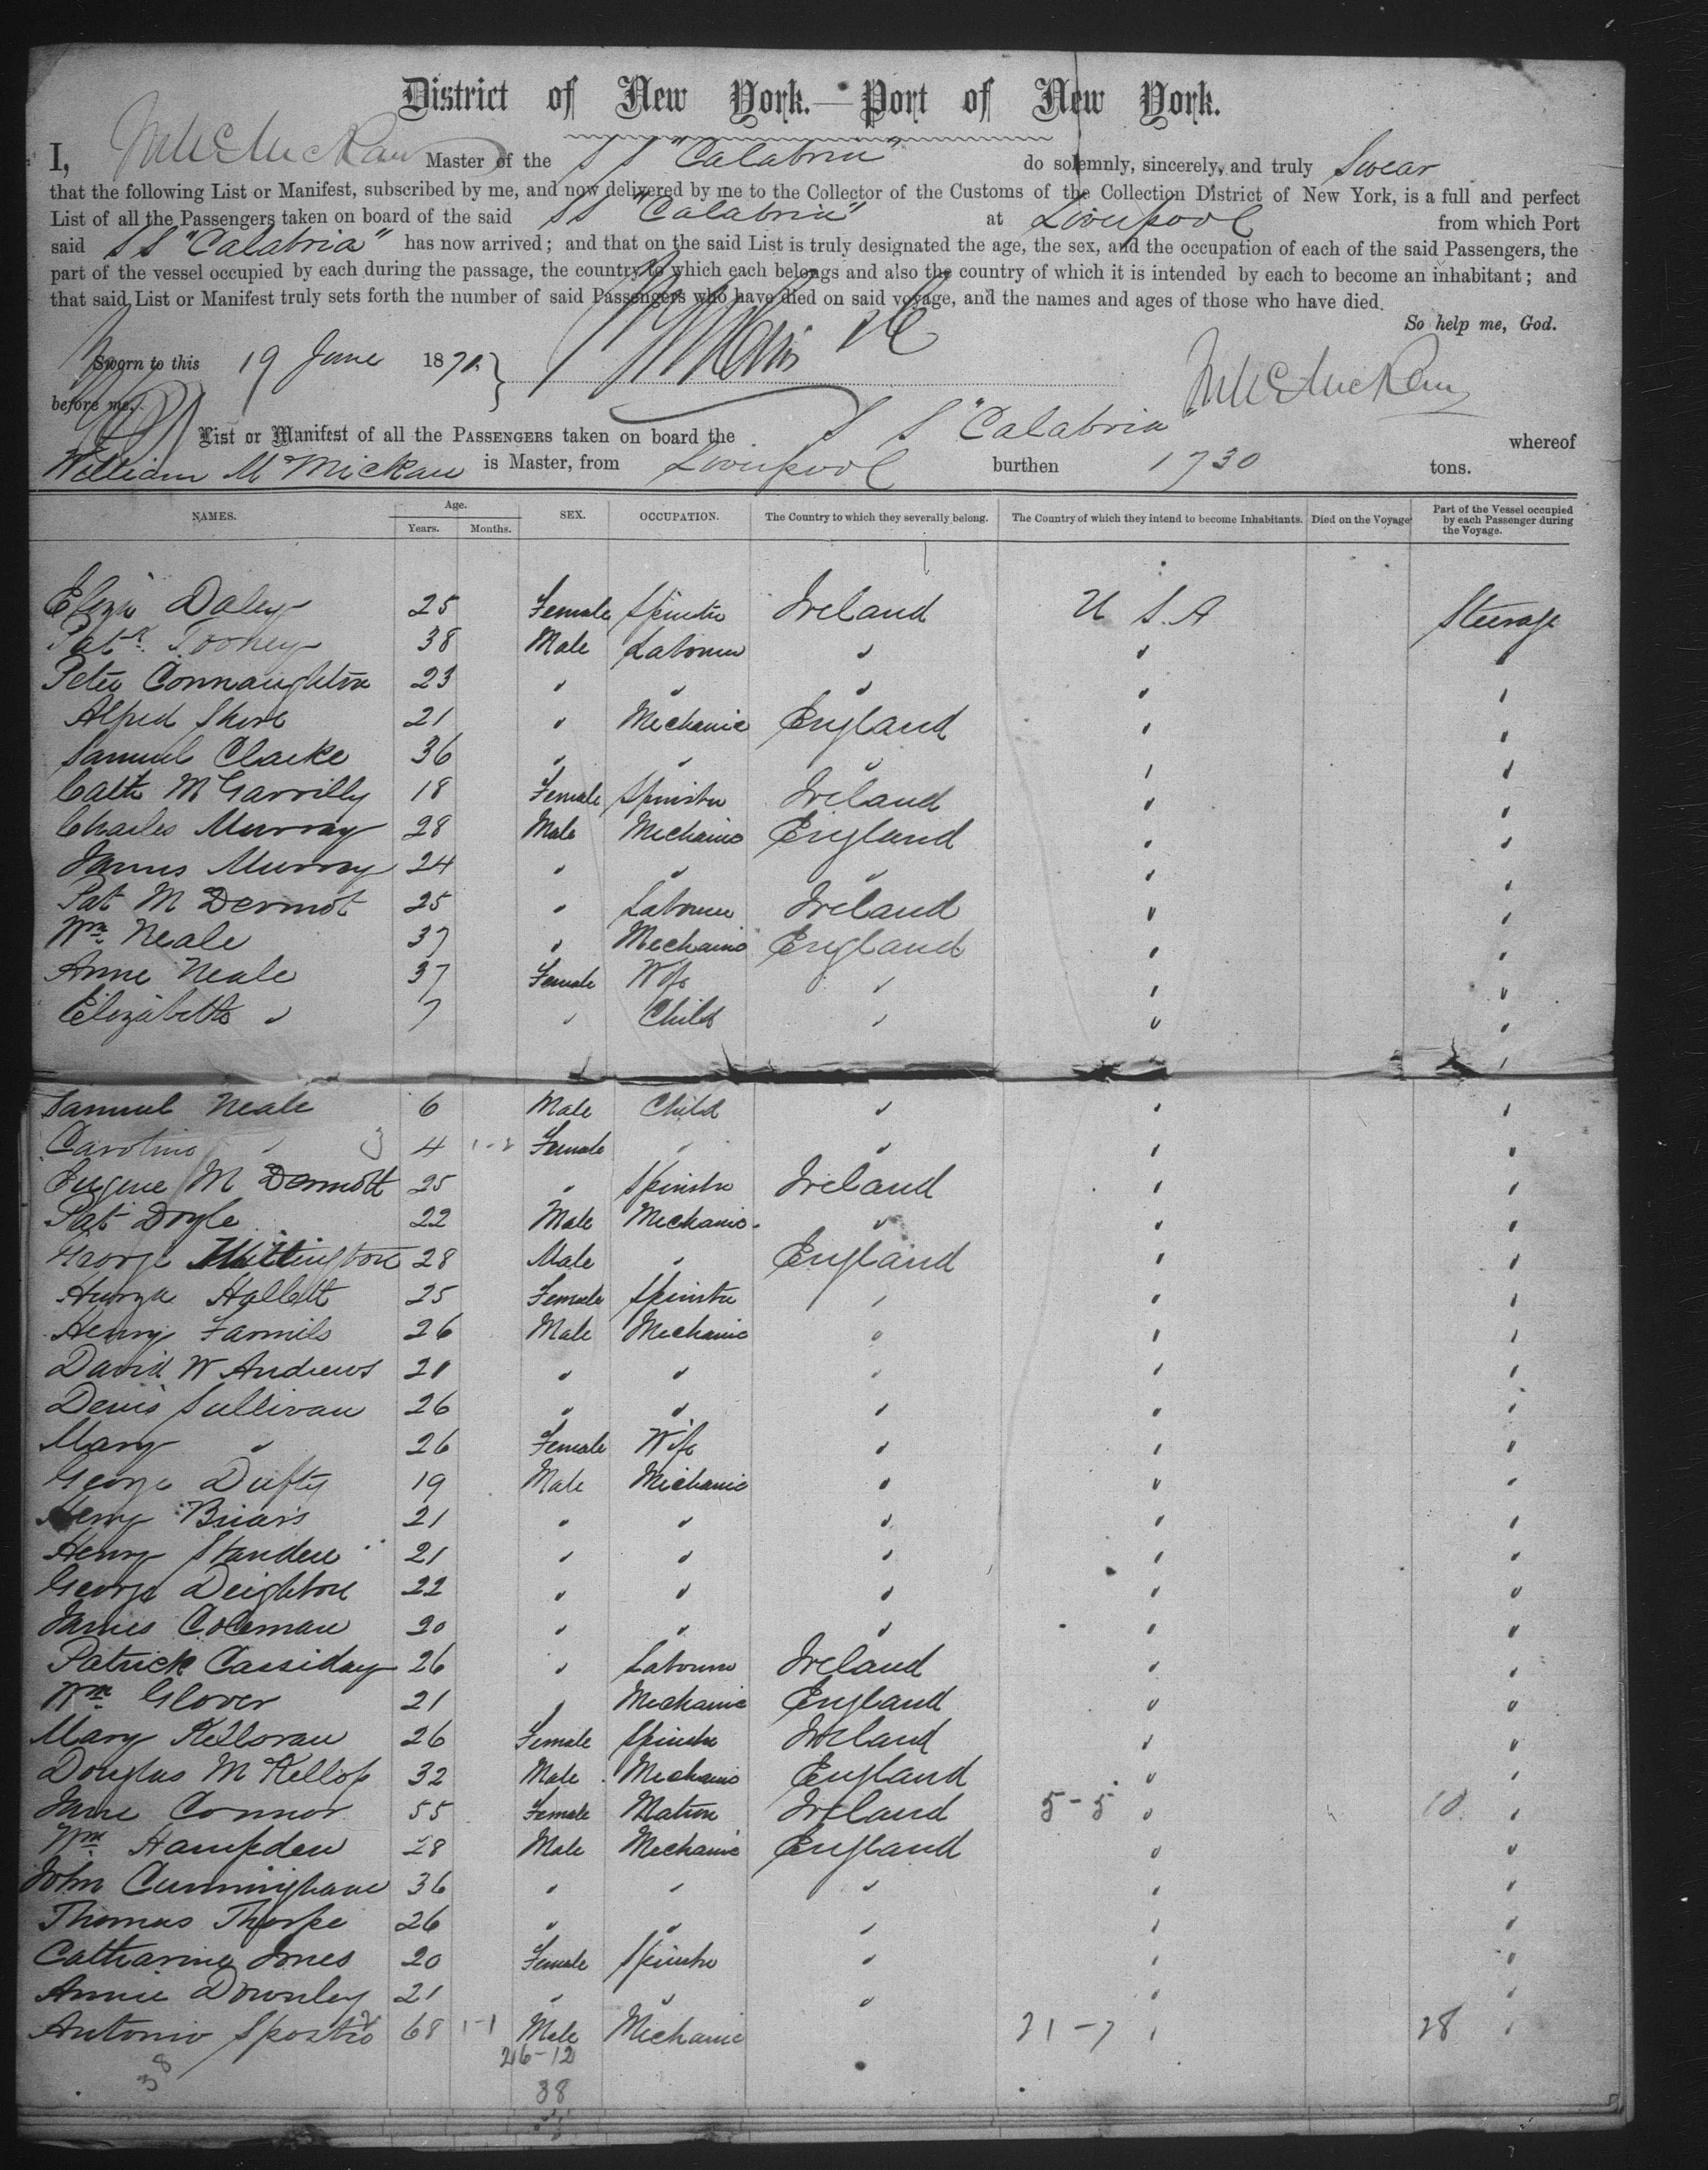 District of New York.—Port of New York.
I, Wm McMickan Master of the SS "Calabria" do solemnly, sincerely, and truly Swear
that the following List or Manifest, subscribed by me, and now delivered by me to the Collector of the Customs of the Collection District of New York, is a full and perfect
List of all the Passengers taken on board of the said SS "Calabria" at Liverpool from which Port
said SS "Calabria" has now arrived; and that on the said List is truly designated the age, the sex, and the occupation of each of the said Passengers, the
part of the vessel occupied by each during the passage, the country to which each belongs and also the country of which it is intended by each to become an inhabitant; and
that said List or Manifest truly sets forth the number of said Passengers who have died on said voyage, and the names and ages of those who have died.
So help me, God.
Sworn to this 19 June 187
before me. Wm McMickan
List or Manifest of all the PASSENGERS taken on board the SS "Calabria" whereof
William McMickan is Master, from Liverpool burthen 1730 tons.
NAMES. Age. Years. Months. SEX. OCCUPATION. The Country to which they severally belong. The Country of which they intend to become Inhabitants. Died on the Voyage Part of the Vessel occupied by each Passenger during the Voyage.
Eliza Daley 25 Female Spinster Ireland U S. A Steerage
Patk. Toohey 38 Male Labourer " " "
Peter Connaughton 23 " " " " "
Alfred Shore 21 " Mechanic England " "
Samuel Clarke 36 " " " " "
Cath McGarrilly 18 Female Spinster Ireland " "
Charles Murray 28 Male Mechanic England " "
James Murray 24 " " " " "
Pat McDermot 25 " Labourer Ireland " "
Wm. Neale 37 " Mechanic England " "
Anne Neale 37 Female Wife " " "
Elizabeth " 7 " Child " " "
Samuel Neale 6 Male Child " " "
Caroline " 3 4 1-2 Female " " " "
Eugene McDermott 25 " Spinster Ireland " "
Pat Doyle 22 Male Mechanic " " "
George Whittington 28 Male " England " "
Hallett 25 Female Spinster " " "
Henry Farmilo 26 Male Mechanic " " "
David W Andrews 21 " " " " "
Denis Sullivan 26 " " " " "
Mary " 26 Female Wife " " "
George Dufty 19 Male Mechanic " " "
Henry Briars 21 " " " " "
Henry Standen 21 " " " " "
George Deighton 22 " " " " "
James Coleman 20 " " " " "
Patrick Cassiday 26 " Labourer Ireland " "
Wm. Glover 21 " Mechanic England " "
Mary Killoran 26 Female Spinster Ireland " "
Douglas McKellop 32 Male Mechanic England " "
Jane Connor 55 Female Matron Ireland 5-5 " 10 "
Wm. Hampden 28 Male Mechanic England " "
John Cunninghame 36 " " " " "
Thomas Thorpe 26 " " " " "
Catharine Jones 20 Female Spinster " " "
Annie Downley 21 " " " " "
Antonio 68 1-1 Male Mechanic 21-7 " 28 "
26-12
38
38